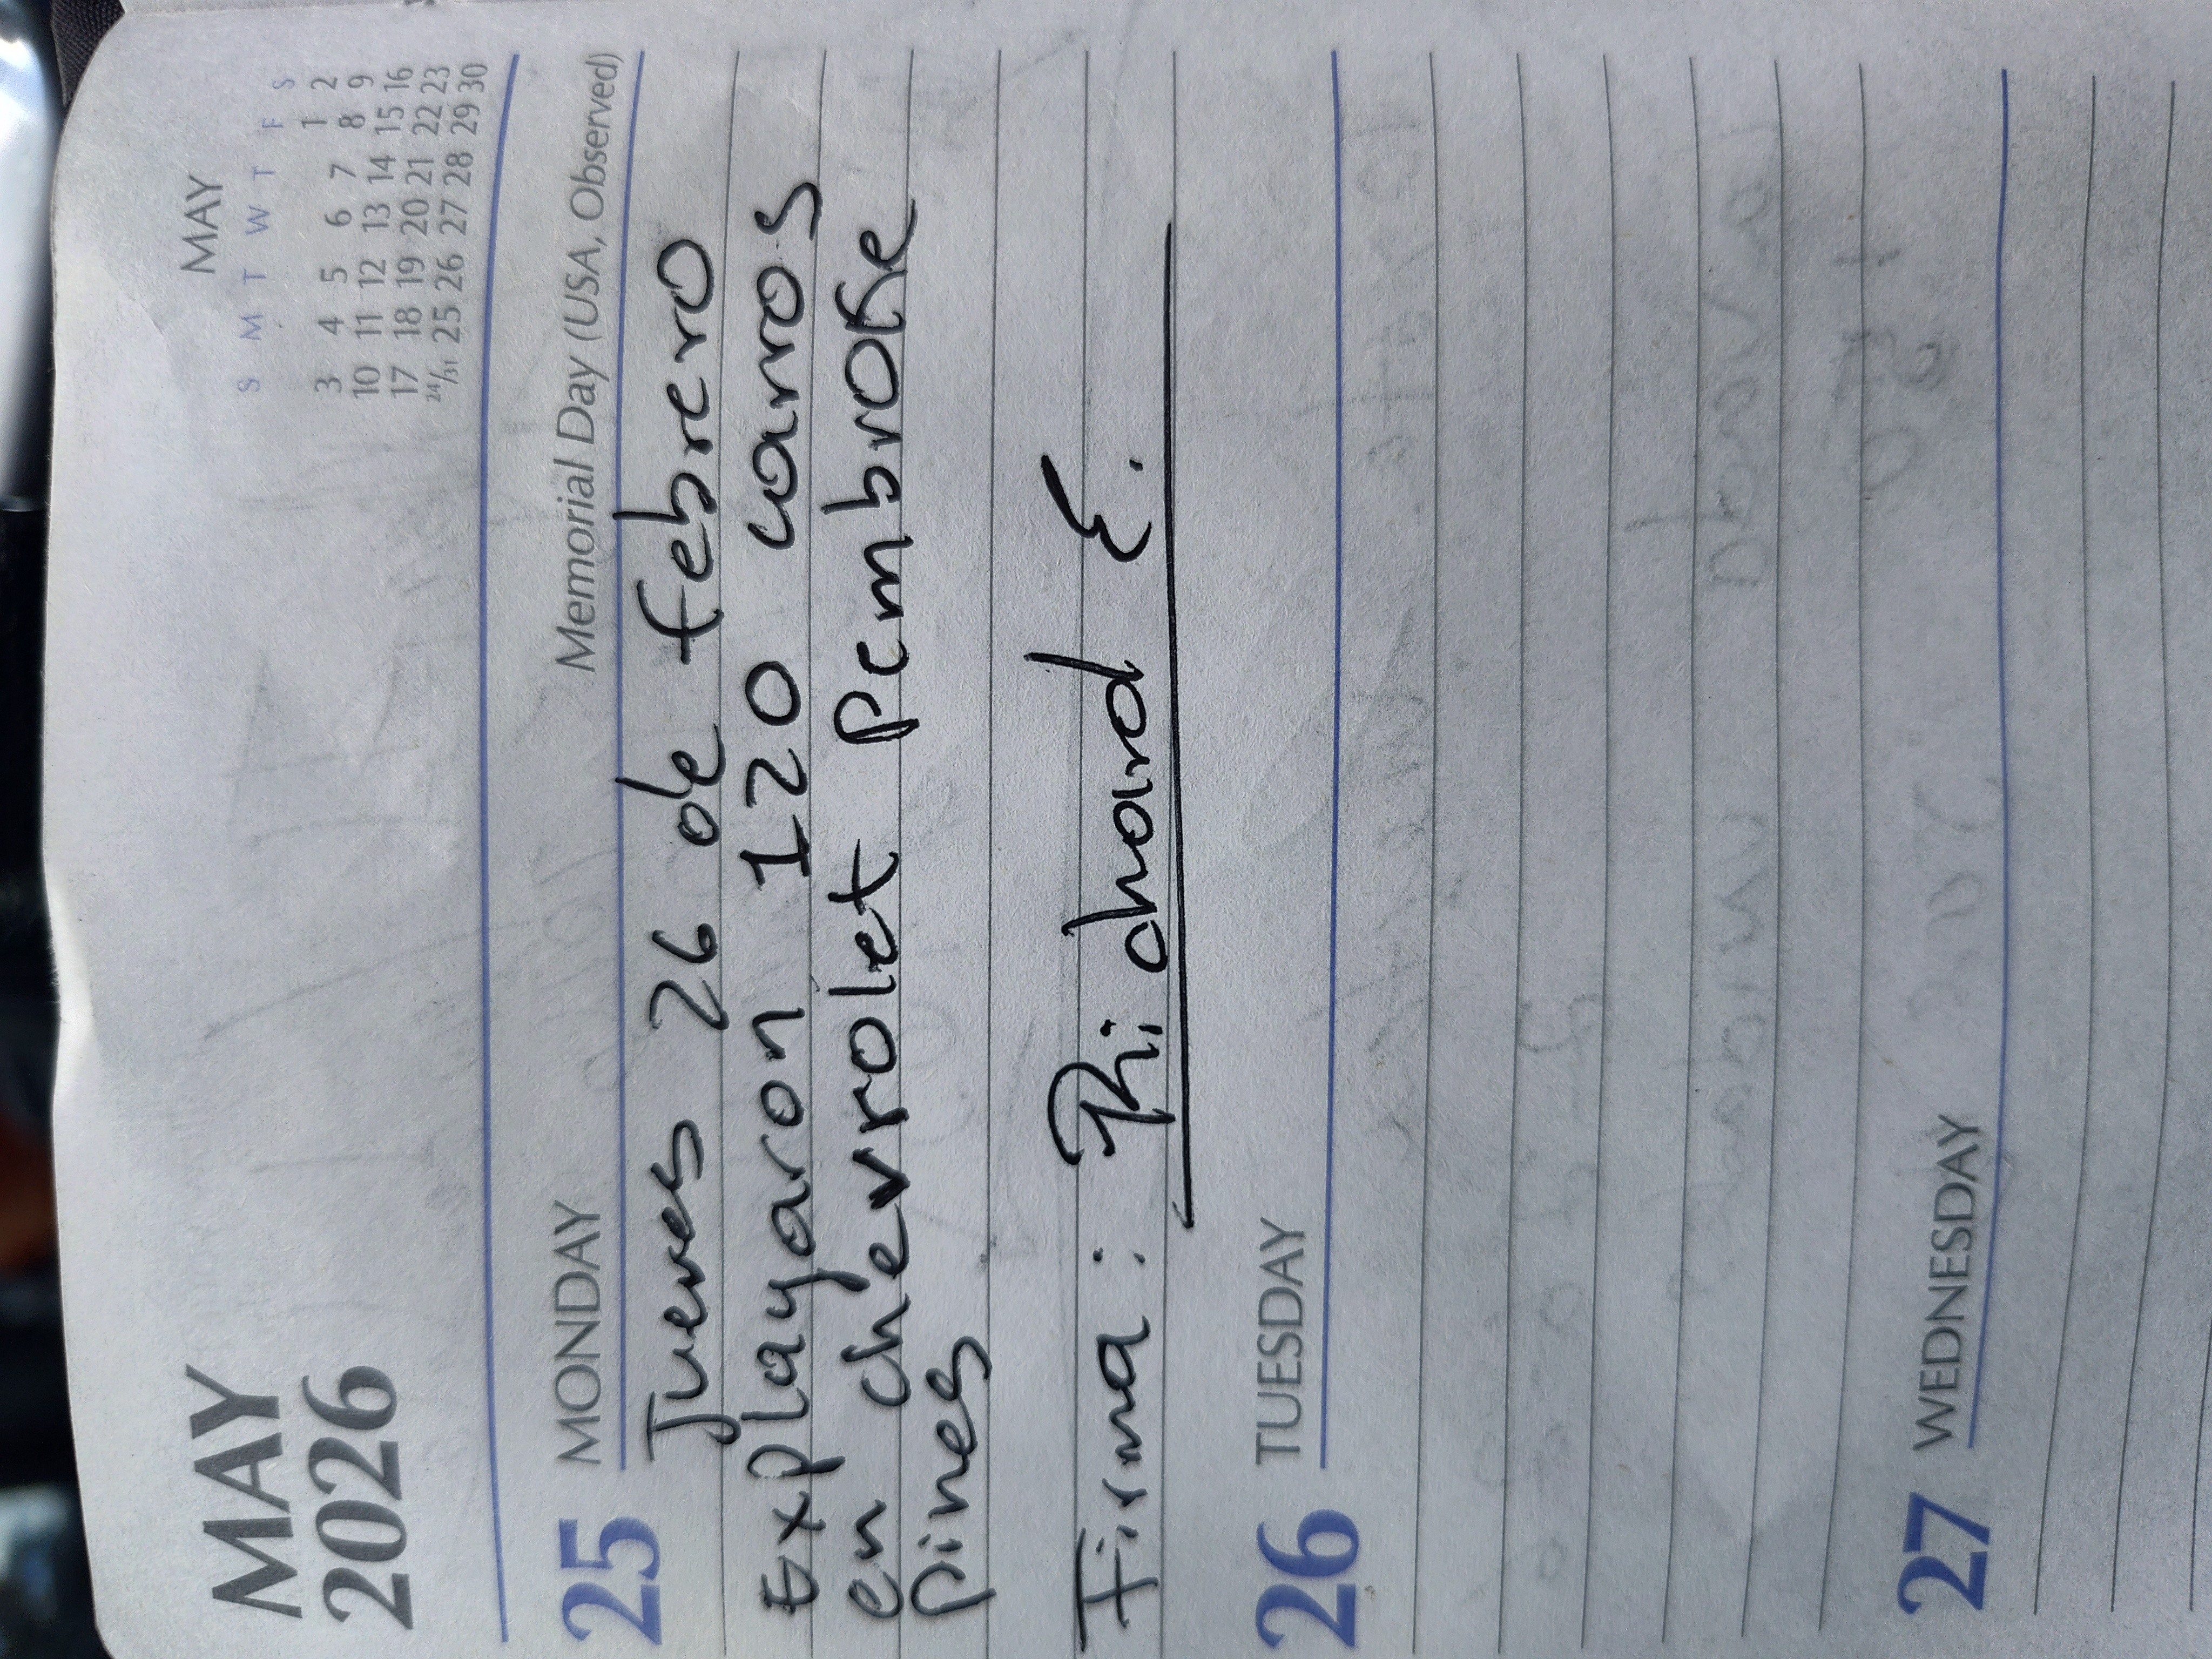 MAY
2026
MAY
S M T W T F S
1 2
3 4 5 6 7 8 9
10 11 12 13 14 15 16
17 18 19 20 21 22 23
24/31 25 26 27 28 29 30
25 MONDAY Memorial Day (USA, Observed)
Jueves 26 de febrero
Explayaron 120 carros
en chevrolet Pembroke
pines
Firma: Richard E.
26 TUESDAY
27 WEDNESDAY